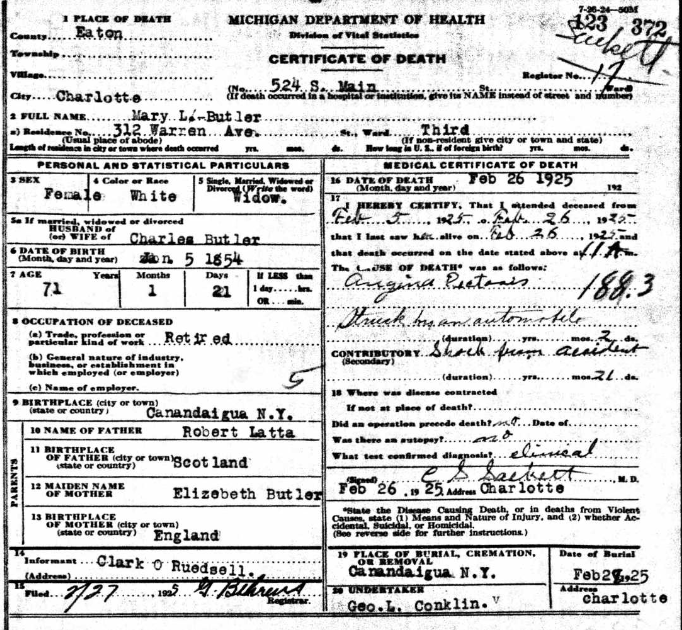 7-26-24—50M
1 PLACE OF DEATH
MICHIGAN DEPARTMENT OF HEALTH
123 372
County Eaton
Division of Vital Statistics
Sackett
Township
CERTIFICATE OF DEATH
Village
Register No. 17
City Charlotte (No. 524 S. Main St. Ward)
(If death occurred in a hospital or institution, give its NAME instead of street and number)
2 FULL NAME Mary L. Butler
a) Residence No. 312 Warren Ave. St., Ward. Third
(Usual place of abode) (If non-resident give city or town and state)
Length of residence in city or town where death occurred yrs. mos. ds. How long in U. S., if of foreign birth? yrs. mos. ds.
PERSONAL AND STATISTICAL PARTICULARS
3 SEX
Female
4 Color or Race
White
5 Single, Married, Widowed or
Divorced (Write the word)
Widow.
5a If married, widowed or divorced
HUSBAND of
(or) WIFE of Charles Butler
6 DATE OF BIRTH
(Month, day and year) Jan 5 1854
7 AGE Years Months Days If LESS than
1 day....hrs.
OR....min.
71 1 21
8 OCCUPATION OF DECEASED
(a) Trade, profession or
particular kind of work Retired
(b) General nature of industry,
business, or establishment in
which employed (or employer)
5
(c) Name of employer.
9 BIRTHPLACE (city or town)
(state or country) Canandaigua N.Y.
PARENTS
10 NAME OF FATHER Robert Latta
11 BIRTHPLACE
OF FATHER (city or town)
(state or country) Scotland
12 MAIDEN NAME
OF MOTHER Elizebeth Butler
13 BIRTHPLACE
OF MOTHER (city or town)
(state or country) England
14
Informant Clark O Ruedsell.
(Address)
15
Filed 2/27 1925 G. Behrens
Registrar.
MEDICAL CERTIFICATE OF DEATH
16 DATE OF DEATH Feb 26 1925
(Month, day and year) 192
17
I HEREBY CERTIFY, That I attended deceased from
Feb 5, 1925, o Feb 26, 1925
that I last saw her alive on Feb 26, 1925 and
that death occurred on the date stated above at 11 A m.
The CAUSE OF DEATH* was as follows:
Angina Pectoris
188.3
Struck by an automobile
(duration) yrs. mos. 2 ds.
CONTRIBUTORY Shock from accident
(Secondary)
(duration) yrs. mos. 21 ds.
18 Where was disease contracted
If not at place of death?
Did an operation precede death? no Date of
Was there an autopsy? no
What test confirmed diagnosis? clinical
(Signed) C S Sackett M. D.
Feb 26, 1925 Address Charlotte
*State the Disease Causing Death, or in deaths from Violent
Causes, state (1) Means and Nature of Injury, and (2) whether Ac-
cidental, Suicidal, or Homicidal.
(See reverse side for further instructions.)
19 PLACE OF BURIAL, CREMATION,
OR REMOVAL
Canandaigua N.Y.
Date of Burial
Feb 28, 25
20 UNDERTAKER
Geo. L. Conklin.
Address
charlotte